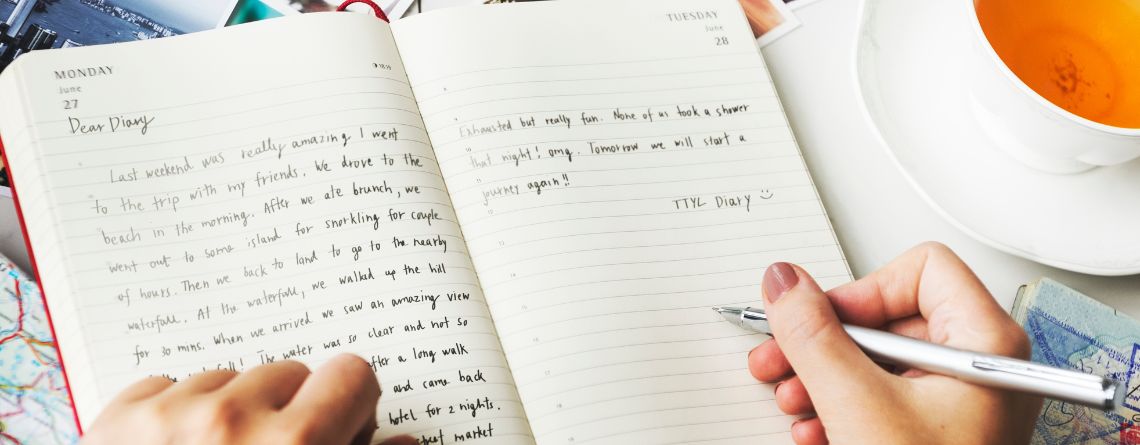 MONDAY
June
27
Dear Diary
Last weekend was really amazing I went
to the trip with my friends. We drove to the
beach in the morning. After we ate brunch, we
went out to some island for snorkling for couple
of hours. Then we back to land to go to the nearby
waterfall. At the waterfall, we walked up the hill
for 30 mins. When we arrived we saw an amazing view
The water was so clear and not so
after a long walk
and came back
hotel for 2 nights.
market
TUESDAY
June
28
Exhausted but really fun. None of us took a shower
that night! omg. Tomorrow we will start a
journey again!!
TTYL Diary